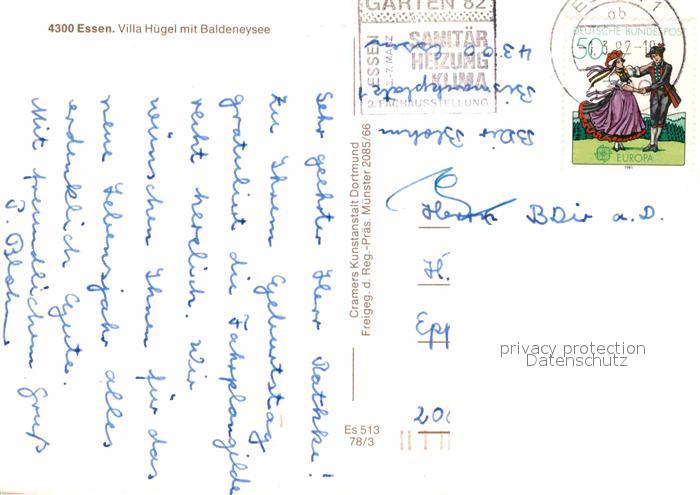 4300 Essen. Villa Hügel mit Baldeneysee
Sehr geehrter Herr Rathke!
Zu Ihrem Geburtstag
gratuliert die Fahrplangilde
recht herzlich. Wir
wünschen Ihnen für das
neue Lebensjahr alles
erdenklich Gute.
Mit freundlichem Gruß
P. Blohm
Cramers Kunstanstalt Dortmund
Freigeg. d. Reg.-Präs. Münster 2085/66
Es 513
78/3
GARTEN 82
ESSEN
3.-7. MÄRZ
SANITÄR
HEIZUNG
KLIMA
9. FACHAUSSTELLUNG
BDir Blohm
Bismarckplatz 1
4300 Essen
DEUTSCHE BUNDESPOST
50
EUROPA
1981
Herrn BDir a. D.
H.
Epp
200
privacy protection
Datenschutz